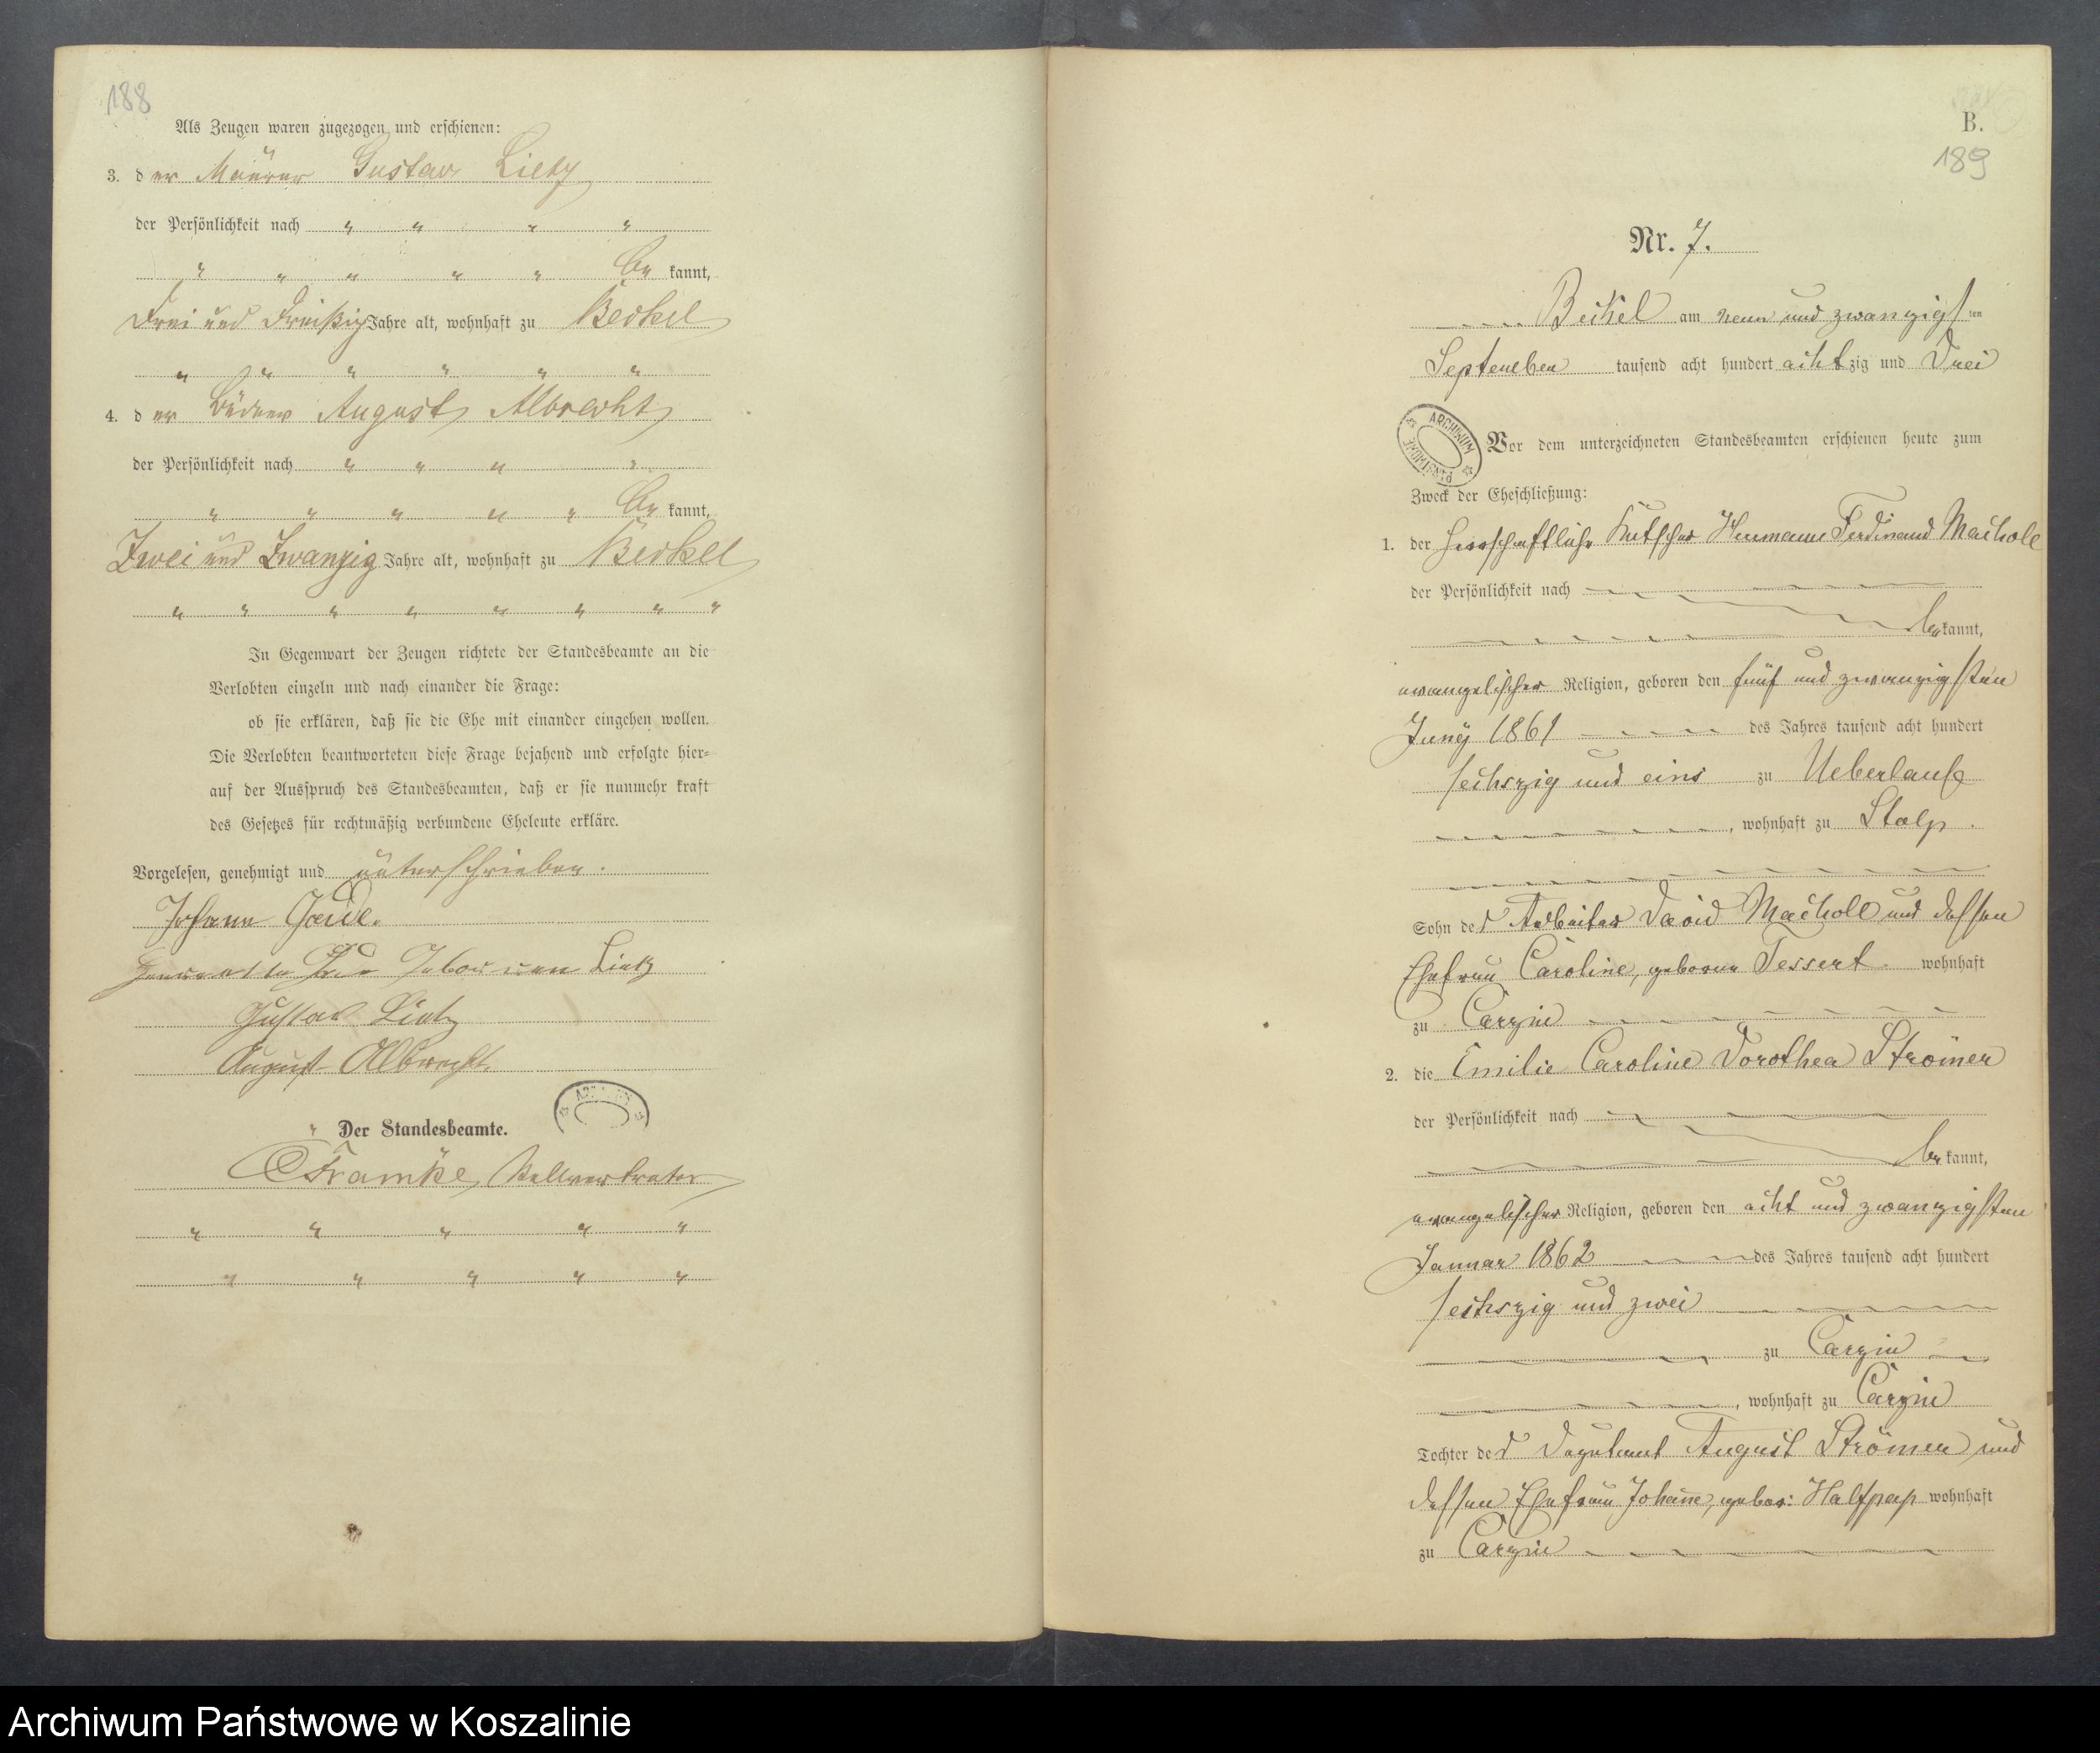 188
Als Zeugen waren zugezogen und erschienen:
3. der Maurer Gustav Lietz
der Persönlichkeit nach " " " "
" " " " " be kannt,
Drei und Dreißig Jahre alt, wohnhaft zu Beckel
" " " " " "
4. der Büdner August Albrecht
der Persönlichkeit nach " " " "
" " " " " be kannt,
Zwei und Zwanzig Jahre alt, wohnhaft zu Beckel
" " " " " " " "
In Gegenwart der Zeugen richtete der Standesbeamte an die
Verlobten einzeln und nach einander die Frage:
ob sie erklären, daß sie die Ehe mit einander eingehen wollen.
Die Verlobten beantworteten diese Frage bejahend und erfolgte hier-
auf der Ausspruch des Standesbeamten, daß er sie nunmehr kraft
des Gesetzes für rechtmäßig verbundene Eheleute erkläre.
Vorgelesen, genehmigt und unterschrieben.
Johann
Lietz
Gustav Lietz
August Albrecht.
Der Standesbeamte.
Framke, Stellvertreter
" " " " "
" " " " "
B.
189
Nr. 7.
Beckel am neun und zwanzigsten
September tausend acht hundert achtzig und drei
ARCHIWUM PAŃSTWOWE
Vor dem unterzeichneten Standesbeamten erschienen heute zum
Zweck der Eheschließung:
1. der herrschaftliche Kutscher Hermann Ferdinand Macholl
der Persönlichkeit nach
be kannt,
evangelischer Religion, geboren den fünf und zwanzigsten
Juny 1861 des Jahres tausend acht hundert
sechszig und eins zu Ueberlauf
, wohnhaft zu Stolp.
Sohn des Arbeiter David Macholl und dessen
Ehefrau Caroline, geborne Tessert wohnhaft
zu Carzin
2. die Emilie Caroline Dorothea Strömer
der Persönlichkeit nach
be kannt,
evangelischer Religion, geboren den acht und zwanzigsten
Januar 1862 des Jahres tausend acht hundert
sechszig und zwei
zu Carzin
, wohnhaft zu Carzin
Tochter des August Strömer und
dessen Ehefrau Johanne, gebor: Halfpap wohnhaft
zu Carzin
Archiwum Państwowe w Koszalinie